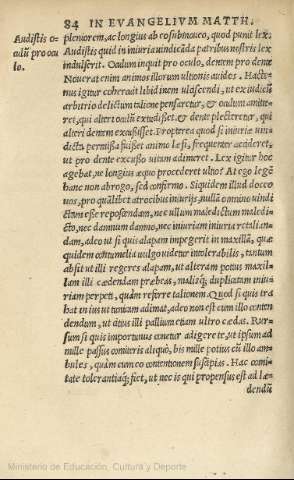 84 IN EVANGELIVM MATTH.
Audistis o-
culũ pro ocu
lo.
pleniorem, ac longius ab eo submoueo, quod punit lex.
Audistis quid in iniuria vindicãda patribus vestris lex
indulserit. Oculum inquit pro oculo, dentem pro dente
Nouerat enim animos illorum vltionis auidos. Hacte-
nus igitur coherauit libidinem vlciscendi, vt ex iudicũ
arbitrio delictum talione pensaretur, & oculum amitte-
ret, qui alteri oculũ extudisset. & dente plecteretur, qui
alteri dentem excussisset. Propterea quod si iniuriæ vin-
dicta permissa fuisset animo læsi, frequenter accideret,
vt pro dente excusso vitam adimeret. Lex igitur hoc
agebat, ne longius æquo procederet vltio. At ego legẽ
hanc non abrogo, sed confirmo. Siquidem illud doceo
vos, pro quãlibet atrocibus iniurijs, nullã omnino vindi
ctam esse reposcendam, nec vllum maledictum maledi-
cto, nec damnum damno, nec iniuriam iniuria retalian-
dam, adeo vt si quis alapam impegerit in maxillã, quæ
quidem contumelia vulgo videtur intolerabilis, tantum
absit vt illi regeres alapam, vt alteram potius maxil-
lam illi cædendam præbeas, malisq; duplicatam iniu-
riam perpeti, quàm referre talionem. Quod si quis tra
hat in ius vt tunicam adimat, adeo non est cum illo conten
dendum, vt citius illi pallium etiam vltro cædas. Rur-
sum si quis importunus conetur adigere te, vt ipsum ad
mille passus comiteris aliquò, bis mille potius cũ illo am-
bules, quàm cum eo contentionem suscipias. Hac comi-
tate tolerantiaq; fiet, vt nec is qui propensus est ad læ-
dendũ
Ministerio de Educación, Cultura y Deporte